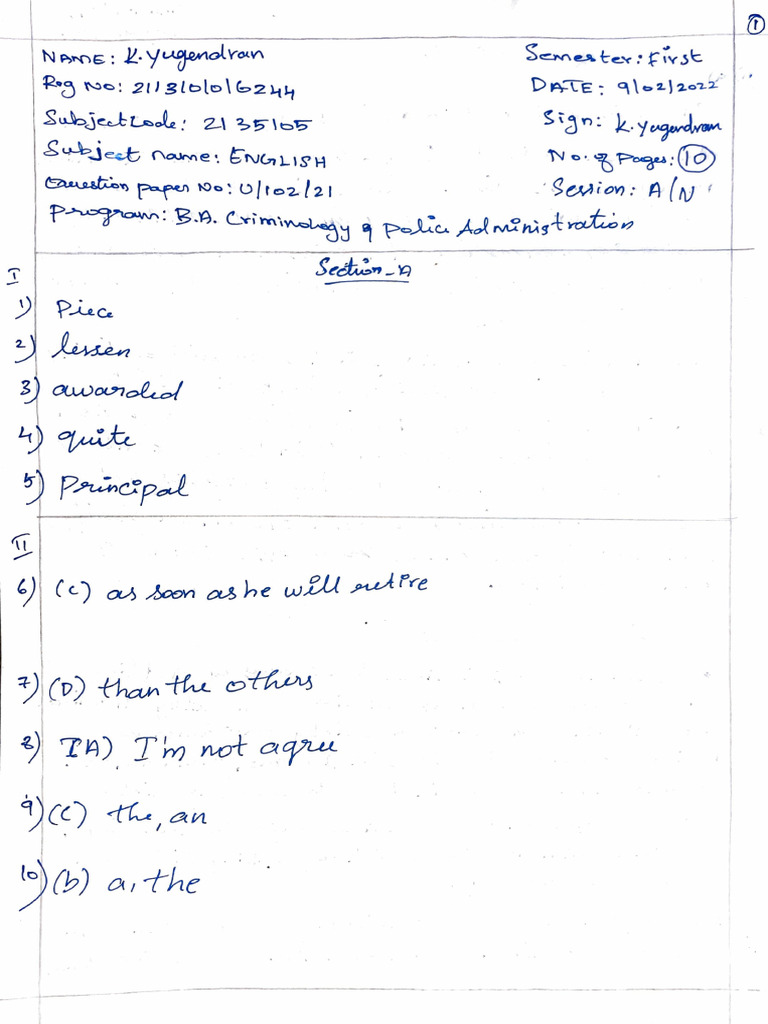 1
NAME: K.Yugendran Semester: First
Reg No: 2113101016244 DATE: 9/02/2022
Subject code: 2135105 Sign: K.Yugendran
Subject name: ENGLISH No. of Pages: 10
Question paper No: U/102/21 Session: A/N
Program: B.A. Criminology & Police Administration
Section-A
I
1) Piece
2) lessen
3) awarded
4) quite
5) Principal
II
6) (c) as soon as he will retire
7) (D) than the others
8) (A) I'm not agree
9) (C) the, an
10) (b) a, the